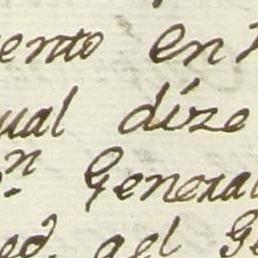 ento en
ual dize
n General
ed. del Ge